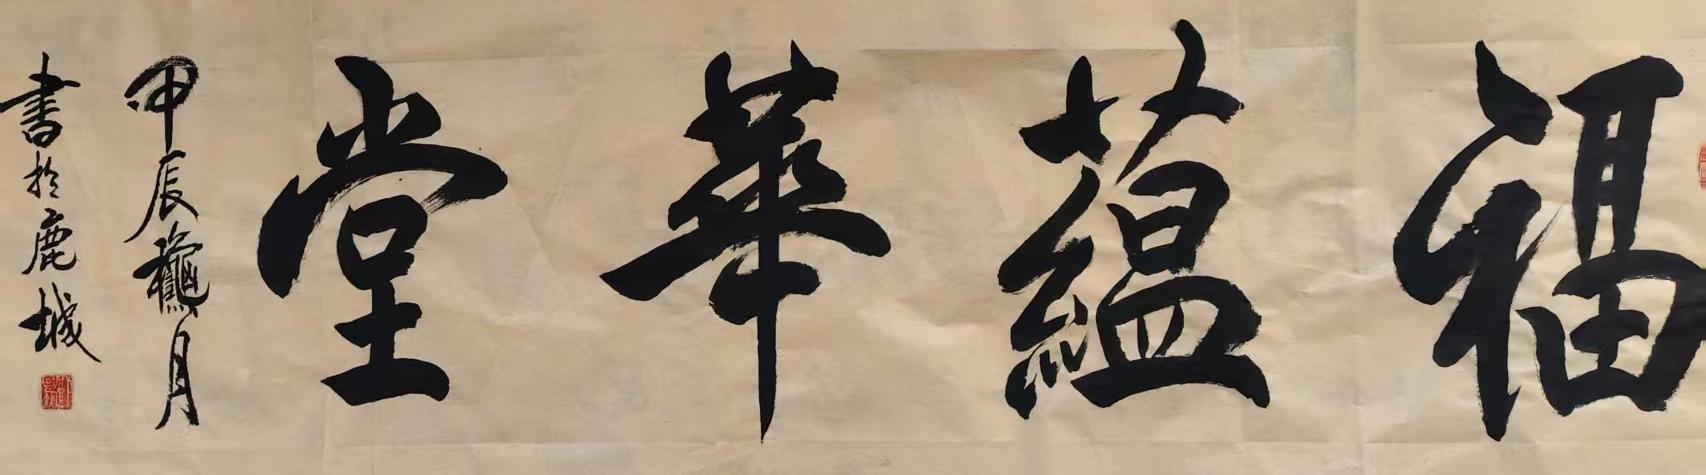 福蘊華堂
甲辰龝月
書於鹿城